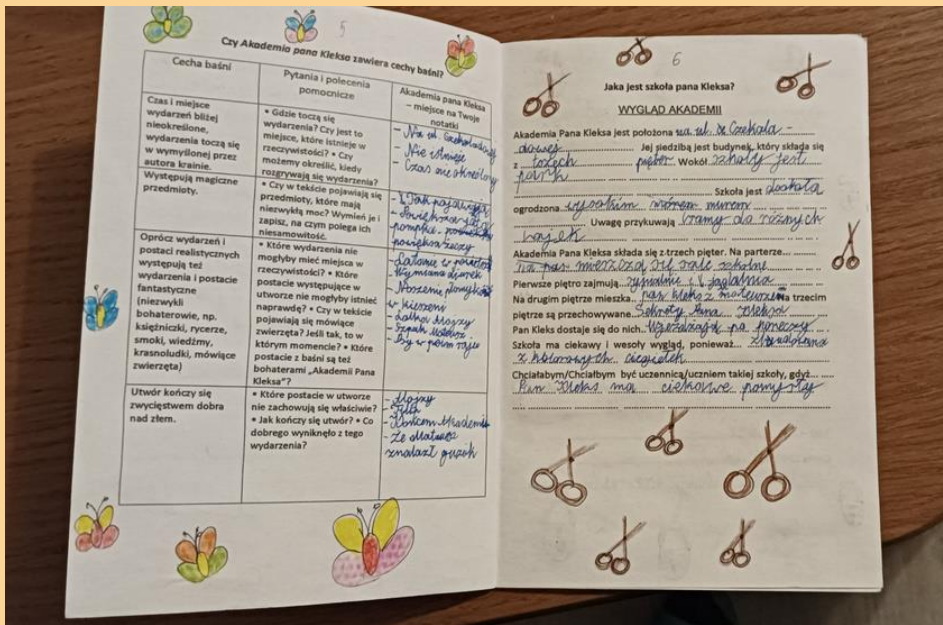 5
Czy Akademia pana Kleksa zawiera cechy baśni?
Cecha baśni
Pytania i polecenia
pomocnicze
Akademia pana Kleksa
– miejsce na Twoje
notatki
Czas i miejsce
wydarzeń bliżej
nieokreślone,
wydarzenia toczą się
w wymyślonej przez
autora krainie.
• Gdzie toczą się
wydarzenia? Czy jest to
miejsce, które istnieje w
rzeczywistości? • Czy
możemy określić, kiedy
rozgrywają się wydarzenia?
- Na ul. Czekoladowej
- Nie istnieje
- Czas nie określony
Występują magiczne
przedmioty.
• Czy w tekście pojawiają się
przedmioty, które mają
niezwykłą moc? Wymień je i
zapisz, na czym polega ich
niesamowitość.
- Tak pojawiają
pompka
powiększa rzeczy
Oprócz wydarzeń i
postaci realistycznych
występują też
wydarzenia i postacie
fantastyczne
(niezwykli
bohaterowie, np.
księżniczki, rycerze,
smoki, wiedźmy,
krasnoludki, mówiące
zwierzęta)
• Które wydarzenia nie
mogłyby mieć miejsca w
rzeczywistości? • Które
postacie występujące w
utworze nie mogłyby istnieć
naprawdę? • Czy w tekście
pojawiają się mówiące
zwierzęta? Jeśli tak, to w
którym momencie? • Które
postacie z baśni są też
bohaterami „Akademii Pana
Kleksa”?
- Latanie w powietrzu
- Wymiana dziurek
- Noszenie płomyków
w kieszeni
- Lalka Alojzy
- Szpak Mateusz
- Psy w psim raju
Utwór kończy się
zwycięstwem dobra
nad złem.
• Które postacie w utworze
nie zachowują się właściwie?
• Jak kończy się utwór? • Co
dobrego wyniknęło z tego
wydarzenia?
- Alojzy
- Filip
- Końcem Akademii
- Że Mateusz
znalazł guzik
6
Jaka jest szkoła pana Kleksa?
WYGLĄD AKADEMII
Akademia Pana Kleksa jest położona na ul. Czekola-
dowej Jej siedzibą jest budynek, który składa się
z trzech pięter. Wokół szkoły jest
park
Szkoła jest dookoła
ogrodzona wysokim murem
Uwagę przykuwają bramy do różnych
bajek
Akademia Pana Kleksa składa się z trzech pięter. Na parterze...
mieszczą się sale szkolne
Pierwsze piętro zajmują sypialnie i jadalnia
Na drugim piętrze mieszka pan Kleks z Mateuszem Na trzecim
piętrze są przechowywane Sekrety Pana Kleksa
Pan Kleks dostaje się do nich Wjeżdżając po poręczy
Szkoła ma ciekawy i wesoły wygląd, ponieważ... zbudowana
z kolorowych cegiełek
Chciałabym/Chciałbym być uczennicą/uczniem takiej szkoły, gdyż...
Pan Kleks ma ciekawe pomysły